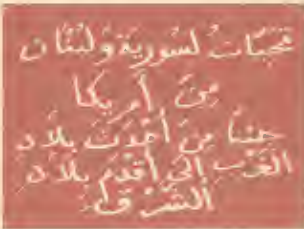 تحيّات لسورية ولبنان
من أمريكا
جئنا من أحدث بلاد
الغرب إلى أقدم بلاد
الشرق